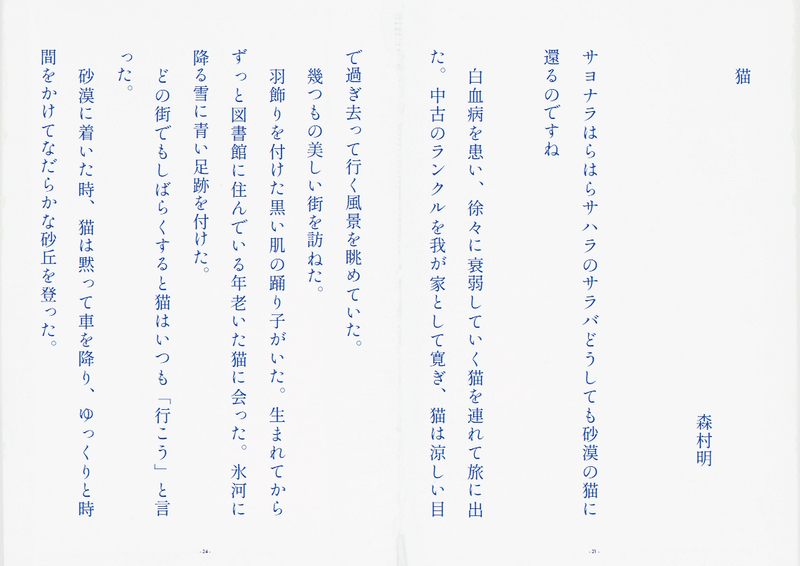 猫
森村明
サヨナラはらはらサハラのサラバどうしても砂漠の猫に
還るのですね
白血病を患い、徐々に衰弱していく猫を連れて旅に出
た。中古のランクルを我が家として寛ぎ、猫は涼しい目
で過ぎ去って行く風景を眺めていた。
幾つもの美しい街を訪ねた。
羽飾りを付けた黒い肌の踊り子がいた。生まれてから
ずっと図書館に住んでいる年老いた猫に会った。氷河に
降る雪に青い足跡を付けた。
どの街でもしばらくすると猫はいつも「行こう」と言
った。
砂漠に着いた時、猫は黙って車を降り、ゆっくりと時
間をかけてなだらかな砂丘を登った。
- 24 -